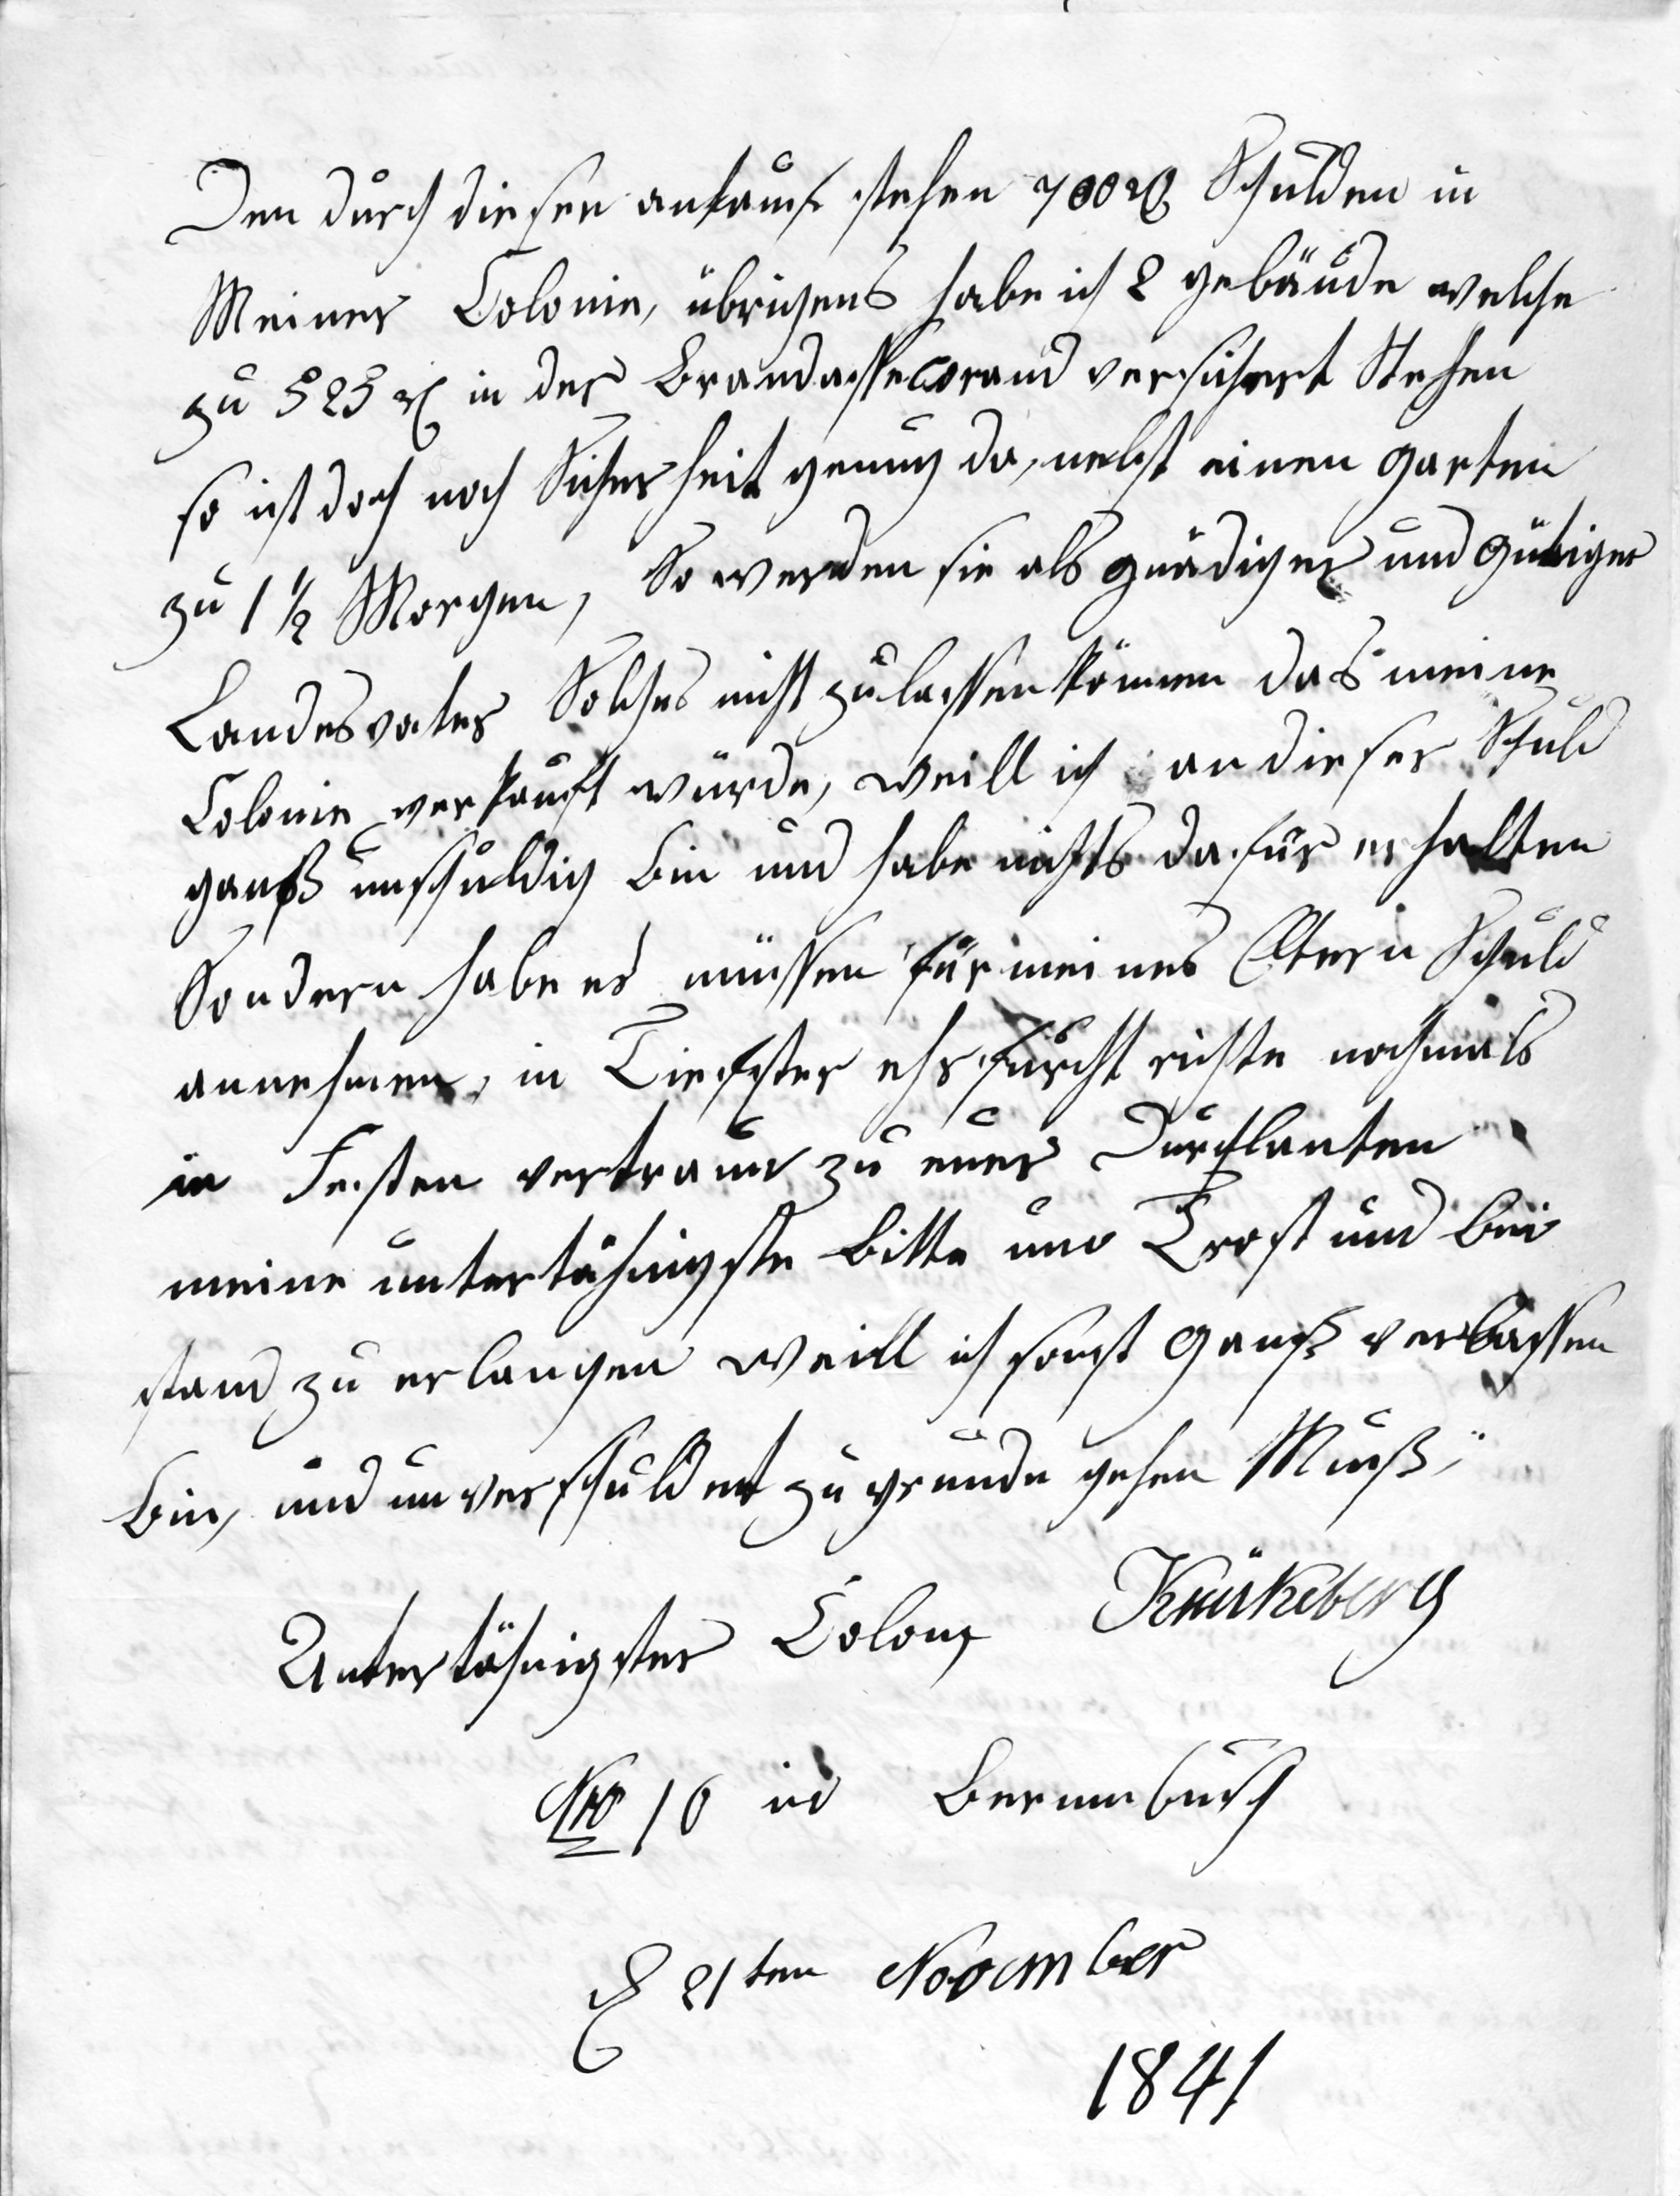 Den durch diesen ankauf stehen 700 rth Schulden in
Meiner Colonie, übrigens habe ich 2 gebäude welche
zu 525 rth in der Brandassecorand versichert Stehen
so ist doch noch Sicherheit genug da, nebst einen garten
zu 1 1/2 Morgen, So werden sie als gnädiger und gütiger
Landesvater Solches nicht zulassen können das meine
Colonie verkauft würde, weill ich an dieser Schuld
ganß unschuldig bin und habe nichts dafür erhalten
Sondern habe es müssen für meines Eltern Schuld
annehmen, in Tiefster ehrfurcht richte nochmals
in Festen vertraun zu euer Durchlauten
meine untertähnigste bitte um Trost und bei
stand zu erlangen weill ich sonst ganß verlassen
bin, und unverschuldet zu grunde gehen Muß,
Untertähnigster Colon
No 16 in
d 21ten November
1841